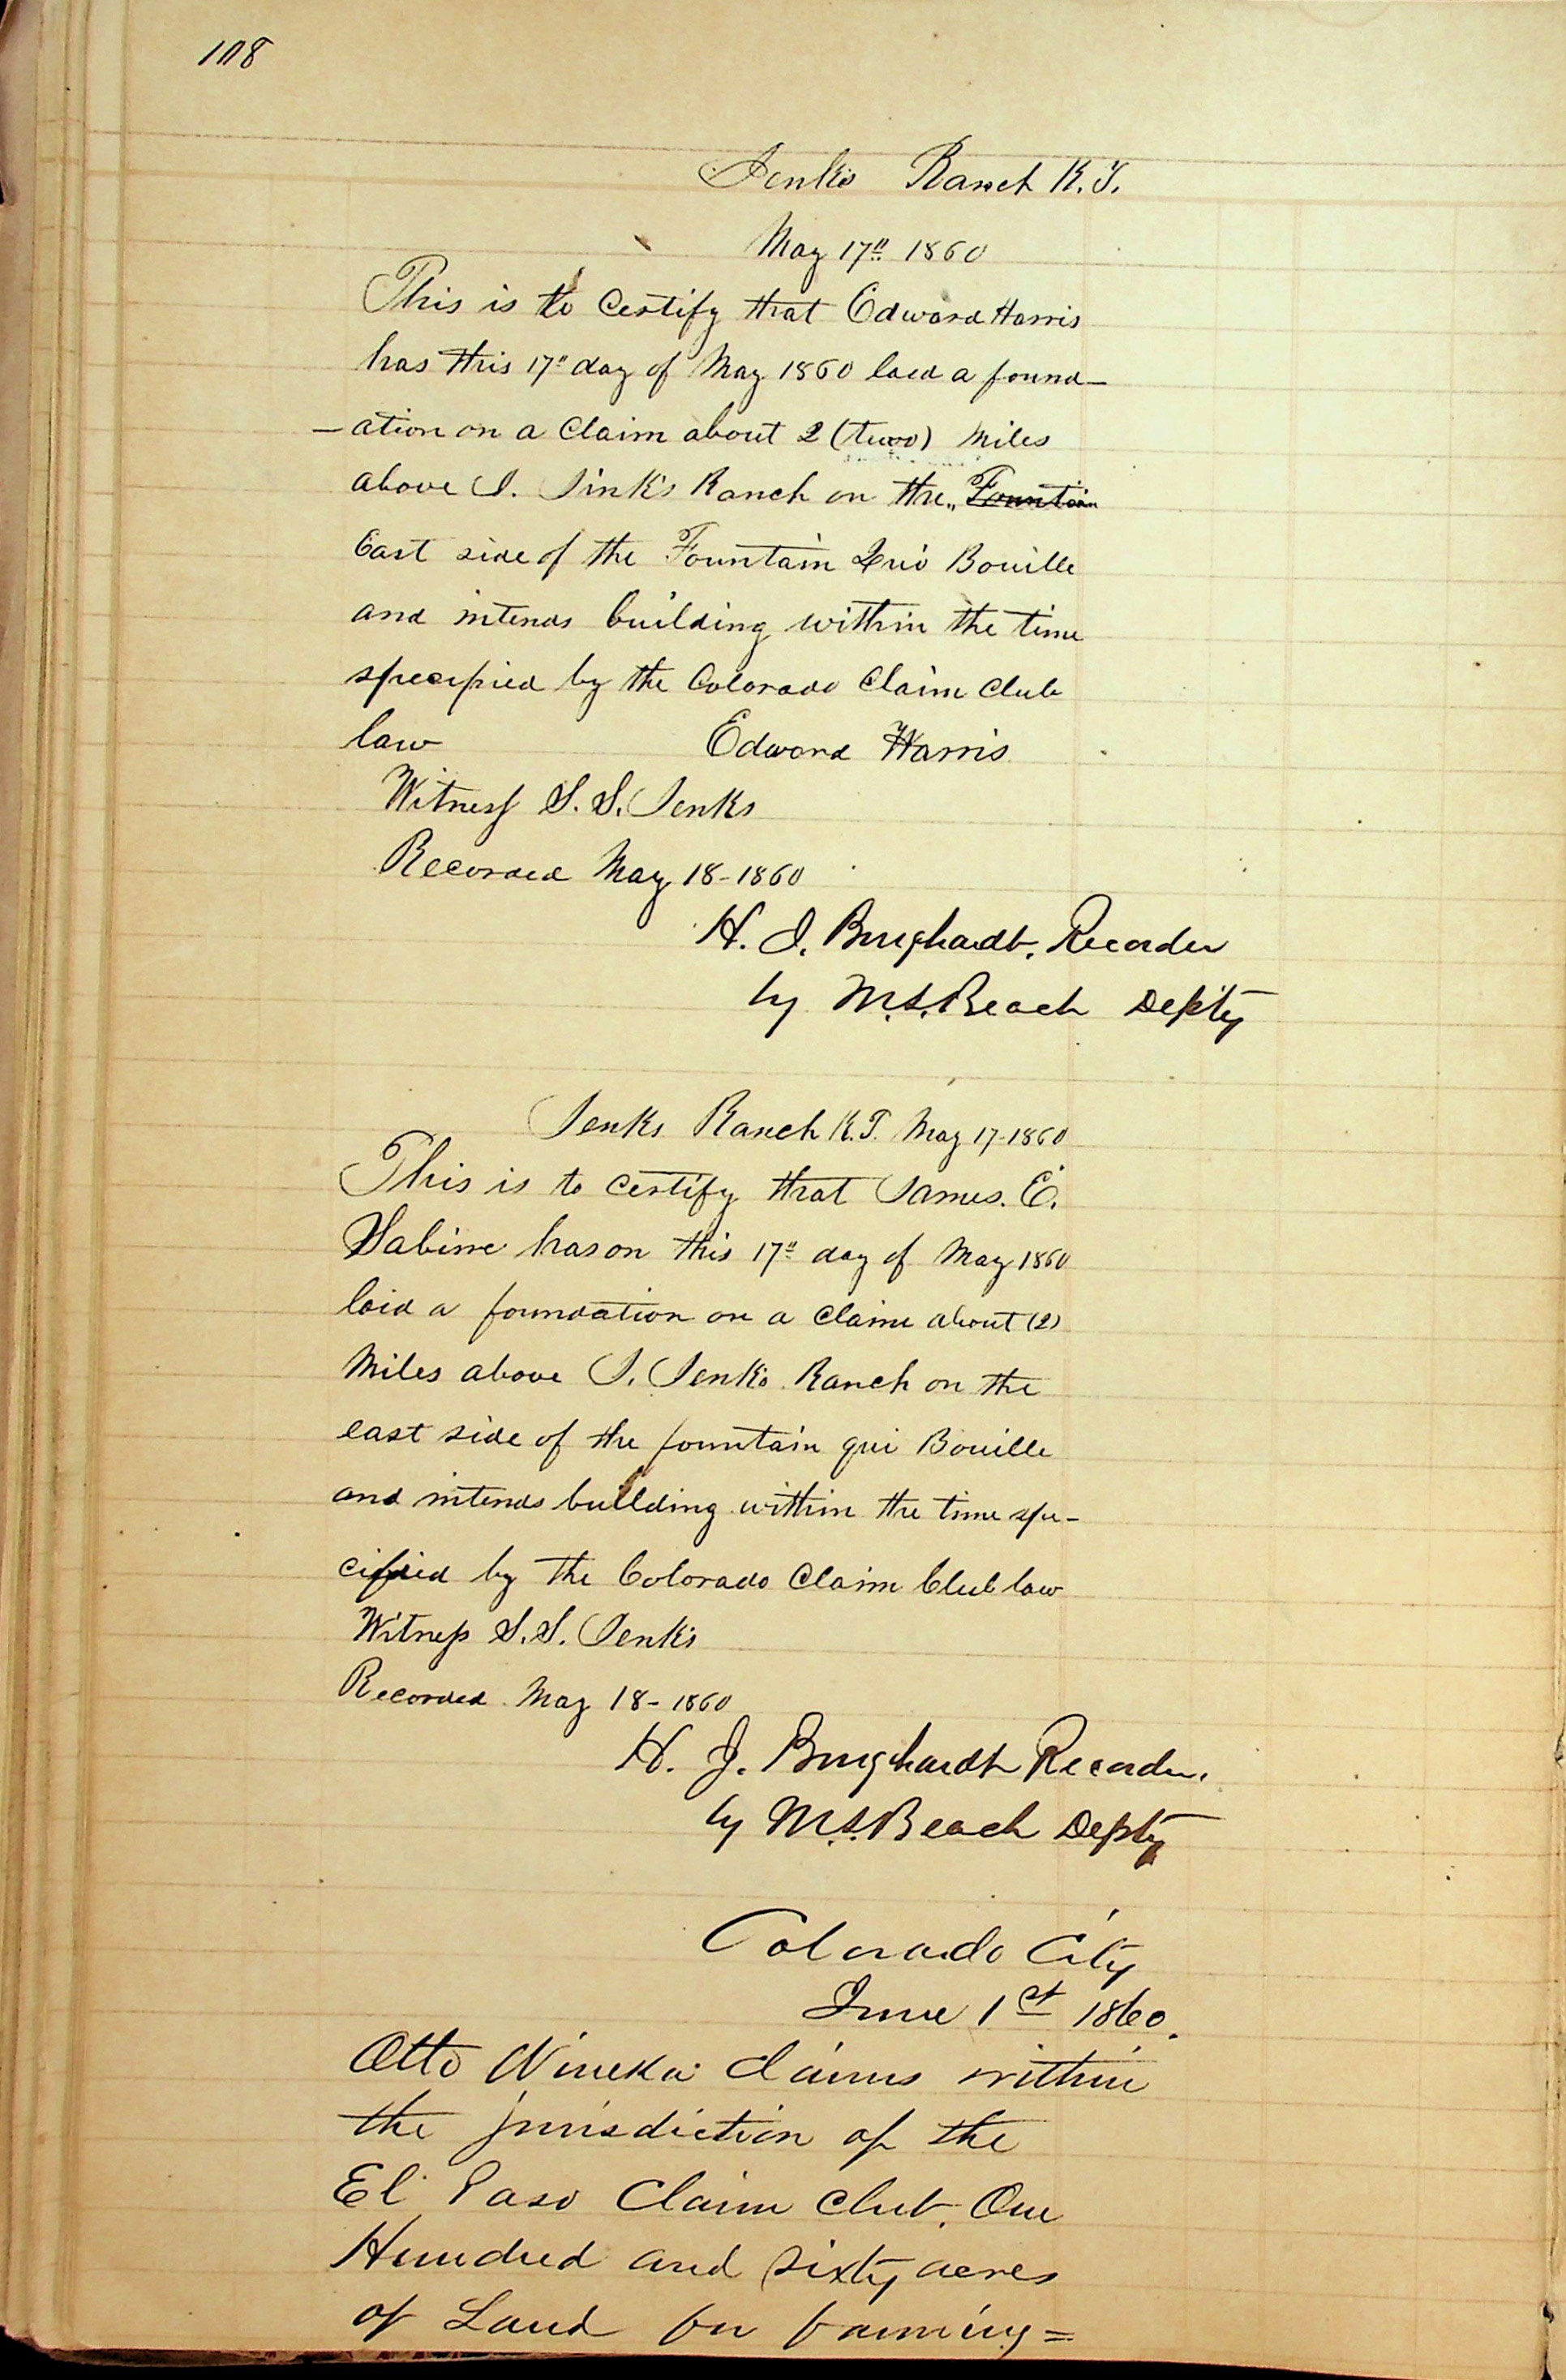 108
Jenks Ranch K.T.
May 17" 1860
This is to Certify that Edward Harris
has this 17" day of May 1860 laid a found-
-ation on a Claim about 2 (two) Miles
above J. Jink's Ranch on the Fountain
East side of the Fountain Qui Bouille
and intends building within the time
specified by the Colorado Claim Club
law Edward Harris
Witness S. S. Jenks
Recorded May 18-1860
H. J. Burghardt, Recorder
by M.S. Beach Dep'ty
Jenks Ranch K.T. May 17-1860
This is to certify that James. E.
Sabine has on this 17" day of May 1860
laid a foundation on a Claim about (2)
Miles above J. Jenks Ranch on the
east side of the fountain qui Bouille
and intends building within the time spe-
cified by the Colorado Claim Club law
Witness S.S. Jenks
Recorded May 18-1860
H. J. Burghardt Recorder.
by M.S. Beach Depty
Colorado City
June 1st 1860.
Otto Wineka claims within
the jurisdiction of the
El Paso Claim Club. One
Hundred and sixty acres
of Land for farming=